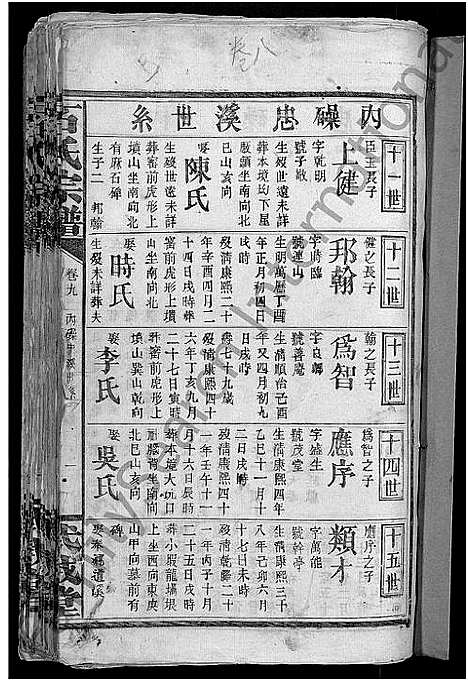 卷八
內磜忠溪世系
十一世
臣玉長子
上健
字乾明
號子敬
生歿世遠未詳
葬本境均下屋
敞額坐南向北
巳山亥向
娶
陳氏
生歿世遠未詳
葬窨前虎形上
墳山坐南向北
有麻石碑
生子二 邦翰
十二世
健之長子
邦翰
字時臨
號連山
生明萬曆丁酉
年正月初四日
戌時
歿清康熙二十
年辛酉四月二
十四日戌時葬
窨前虎形上墳
山坐南向北
娶
時氏
生歿未詳葬夫
十三世
翰之長子
為智
字良卿
號善菴
生清順治己酉
年又四月初九
日戌時
歿清康熙四十
六年丁亥九月
二十七日寅時
葬窨前虎形上
墳山巽山乾向
娶
李氏
十四世
為智之子
應序
字盛生
號茂堂
生清康熙四年
乙巳十一月十
二日戌時
歿清康熙四十
一年壬午十一
月十六日辰時
葬本境大坑口
坐南向
北巳山亥向
娶
吳氏
十五世
應序之子
類才
字萬能
號幹亭
生清康熙三十
八年己卯六月
十七日未時
歿清乾隆二十
一年丙子十月
二十五日戌時
葬小蝦龍塘垠
上坐西向東庚
山甲向墓前有
碑
氏宗譜
卷九